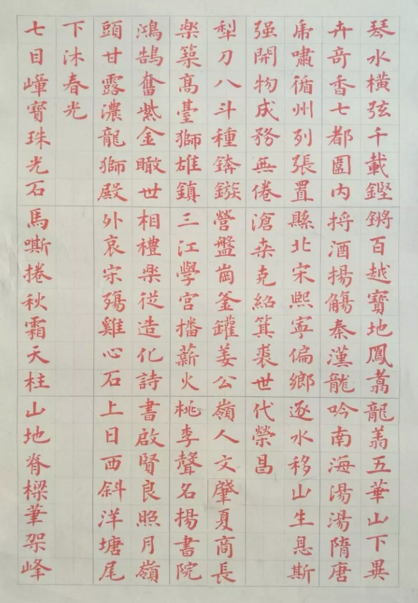 琴水橫弦千載鏗鏘百越寶地鳳翥龍五華山下異
卉奇香七都園內捋酒揚觴秦漢龍吟南海湯湯隋唐
虎嘯循州列張置縣北宋熙寧偏鄉逐水移山生息斯
强開物成務無倦滄桑克紹箕裘世代榮昌
犁刀八斗種鏃營盤崗釜罐姜公嶺人文肇夏商長
樂築高臺獅雄鎮三江學宮播薪火桃李聲名揚書院
鴻鵠奮紫金瞰世相禮樂從造化詩書啟賢良照月嶺
頭甘露濃龍獅殿外哀宗殤雞心石上日西斜洋塘尾
下沐春光
七目嶂寶珠光石馬嘶捲秋霜天柱山地脊樑筆架峰